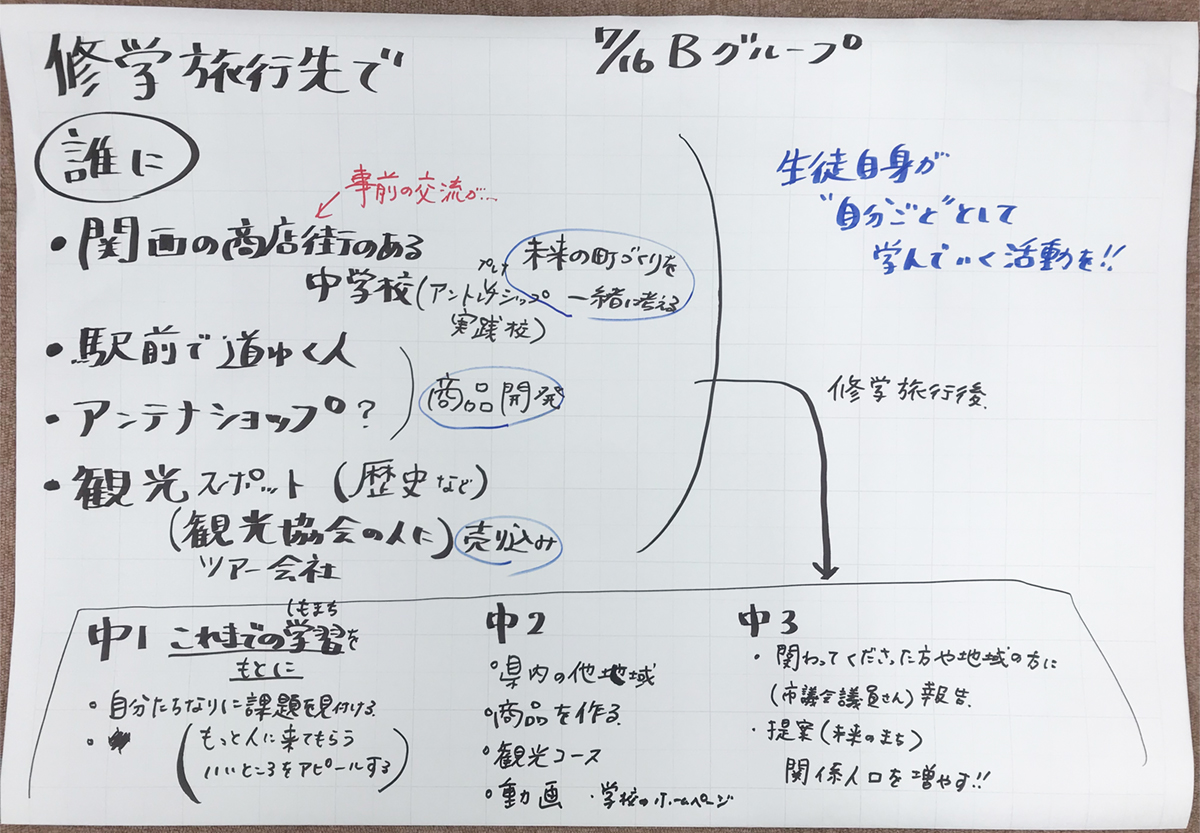 修学旅行先で
7/16 Bグループ
誰に
事前の交流が…
・関西の商店街のある
中学校(アントレプレナーシップ
実践校)
未来の町づくりを
一緒に考える
・駅前で道ゆく人
・アンテナショップ?
商品開発
・観光スポット(歴史など)
(観光協会の人に)売り込み
ツアー会社
生徒自身が
"自分ごと"として
学んでいく活動を!!
修学旅行後
中1 これまでの学習を
しもまち
もとに
・自分たちなりに課題を見付ける
・(もっと人に来てもらう
いいところをアピールする)
中2
・県内の他地域
・商品を作る
・観光コース
・動画 ・学校のホームページ
中3
・関わってくださった方や地域の方に
(市議会議員さん)報告
・提案(未来のまち)
関係人口を増やす!!